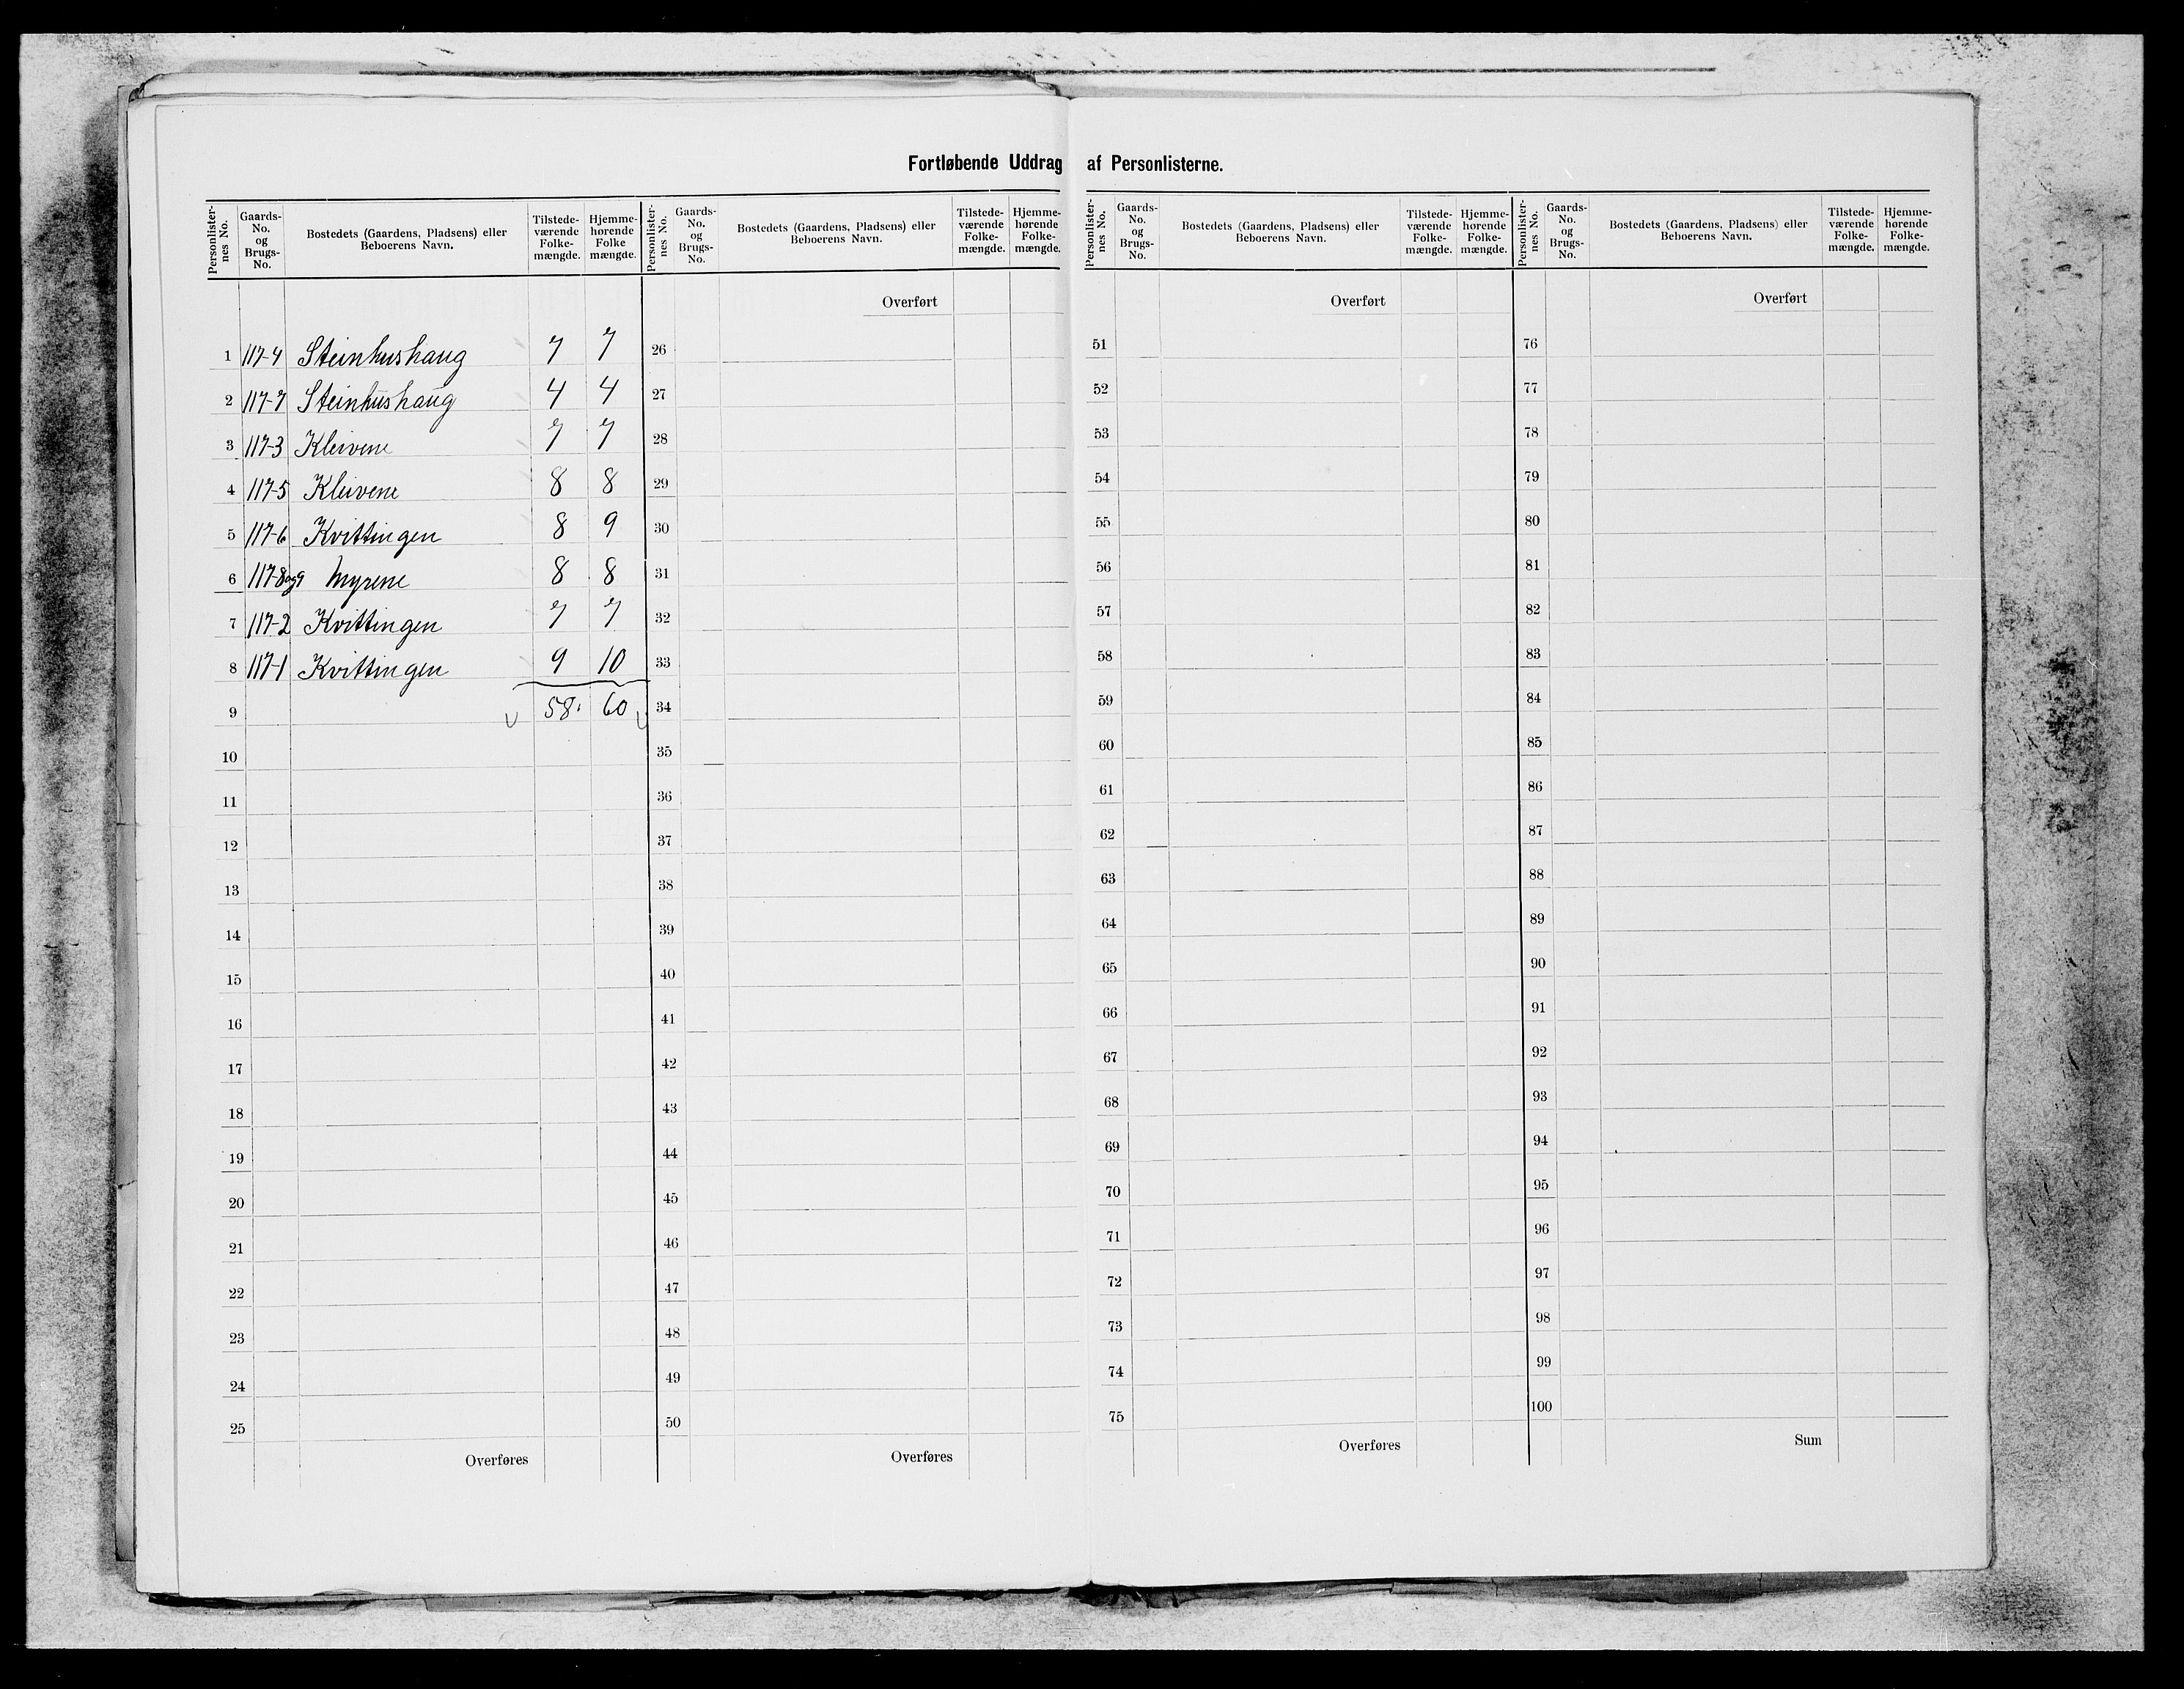 Fortløbende Uddrag af Personlisterne.
Personlister-nes No. | Gaards-No. og Brugs-No. | Bostedets (Gaardens, Pladsens) eller Beboerens Navn. | Tilstede-værende Folke-mængde. | Hjemme-hørende Folke mængde. | Personlister-nes No. | Gaards-No. og Brugs-No. | Bostedets (Gaardens, Pladsens) eller Beboerens Navn. | Tilstede-værende Folke-mængde. | Hjemme-hørende Folke-mængde. | Personlister-nes No. | Gaards-No. og Brugs-No. | Bostedets (Gaardens, Pladsens) eller Beboerens Navn. | Tilstede-værende Folke-mængde. | Hjemme-hørende Folke-mængde. | Personlister-nes No. | Gaards-No. og Brugs-No. | Bostedets (Gaardens, Pladsens) eller Beboerens Navn. | Tilstede-værende Folke-mængde. | Hjemme-hørende Folke-mængde.
Overført Overført Overført
1 117-4 Steinhushaug 7 7 26 51 76
2 117-7 Steinhushaug 4 4 27 52 77
3 117-3 Kleivene 7 7 28 53 78
4 117-5 Kleivene 8 8 29 54 79
5 117-6 Kvittingen 8 9 30 55 80
6 117-8og9 Myrene 8 8 31 56 81
7 117-2 Kvittingen 7 7 32 57 82
8 117-1 Kvittingen 9 10 33 58 83
9 58 60 34 59 84
10 35 60 85
11 36 61 86
12 37 62 87
13 38 63 88
14 39 64 89
15 40 65 90
16 41 66 91
17 42 67 92
18 43 68 93
19 44 69 94
20 45 70 95
21 46 71 96
22 47 72 97
23 48 73 98
24 49 74 99
25 50 75 100
Overføres Overføres Overføres Sum